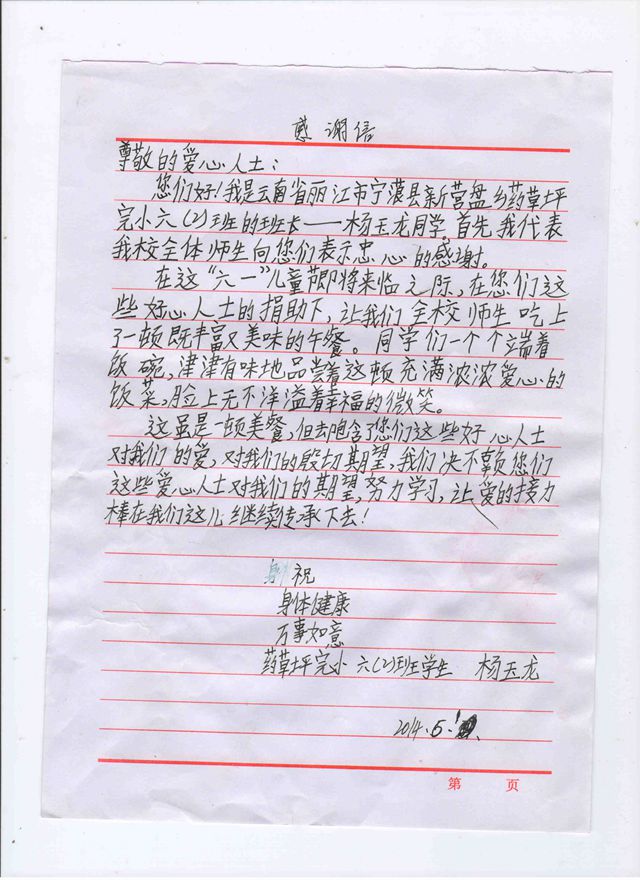 感谢信
尊敬的爱心人士：
您们好！我是云南省丽江市宁蒗县新营盘乡药草坪
完小六(2)班的班长——杨玉龙同学。首先，我代表
我校全体师生向您们表示忠心的感谢。
在这“六一”儿童节即将来临之际，在您们这
些好心人士的捐助下，让我们全校师生吃上
了一顿既丰富又美味的午餐。同学们一个个端着
饭碗，津津有味地品尝着这顿充满浓浓爱心的
饭菜，脸上无不洋溢着幸福的微笑。
这虽是一顿美餐，但却饱含了您们这些好心人士
对我们的爱，对我们的殷切期望，我们决不辜负您们
这些爱心人士对我们的期望，努力学习，让爱的接力
棒在我们这儿继续传承下去！
祝
身体健康
万事如意
药草坪完小六(2)班学生 杨玉龙
2014.5.
第 页